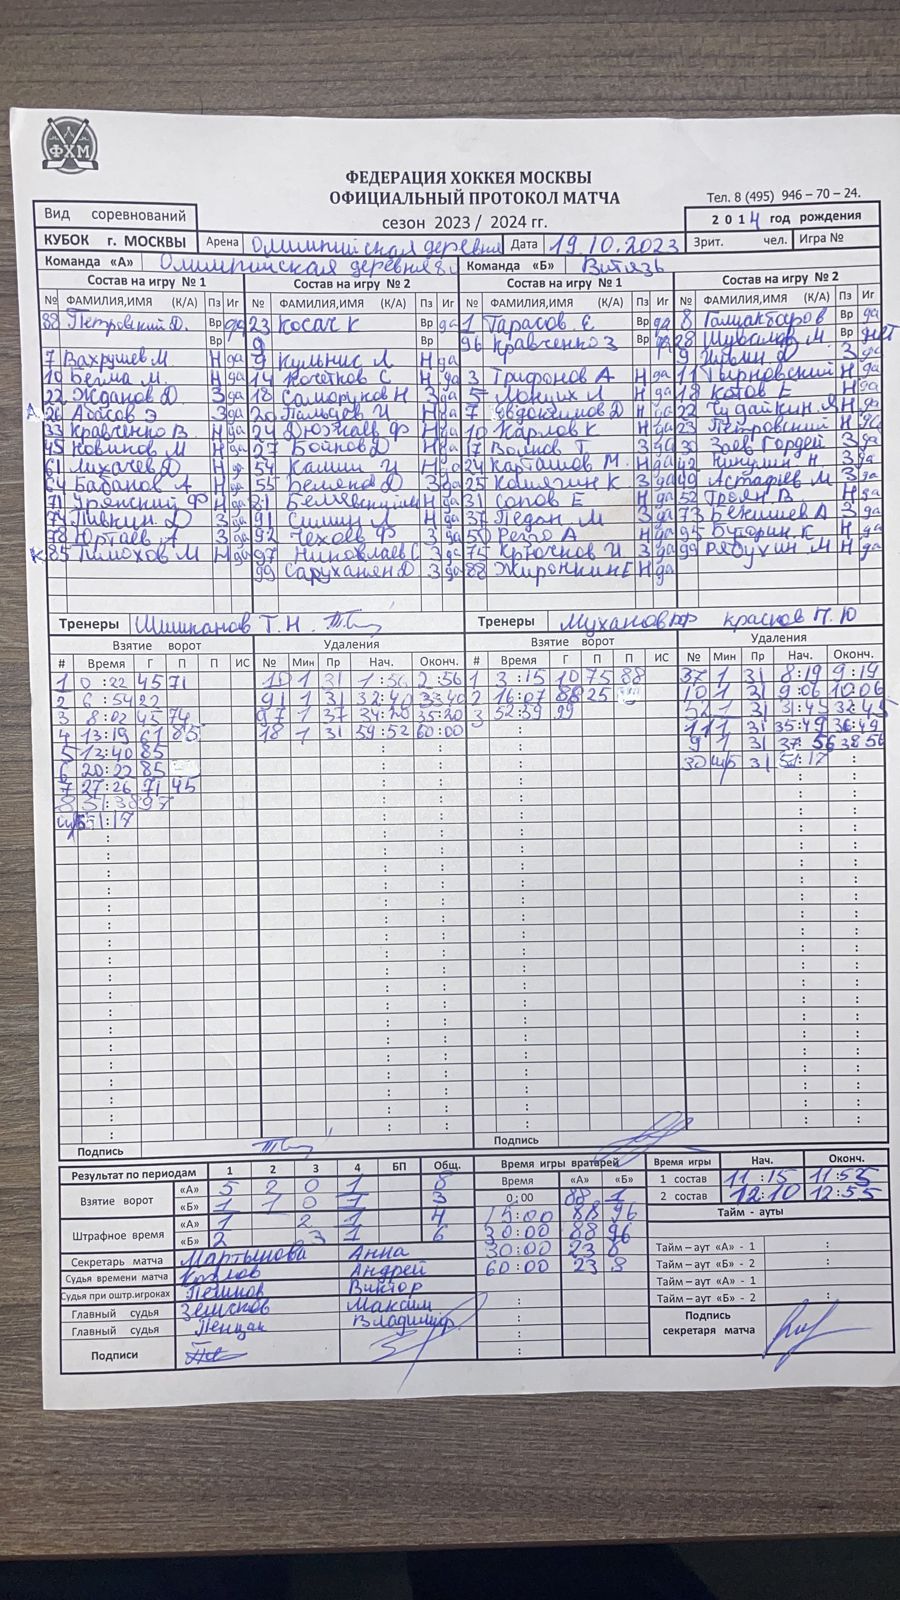 ФХМ
ФЕДЕРАЦИЯ ХОККЕЯ МОСКВЫ
ОФИЦИАЛЬНЫЙ ПРОТОКОЛ МАТЧА
Тел. 8 (495) 946 – 70 – 24.
сезон 2023 / 2024 гг.
Вид соревнований
2 0 1 4 год рождения
КУБОК г. МОСКВЫ Арена Олимпийская деревня Дата 19.10.2023 Зрит. чел. Игра №
Команда «А» Олимпийская деревня Команда «Б» Витязь
Состав на игру № 1 Состав на игру № 2 Состав на игру № 1 Состав на игру № 2
№ ФАМИЛИЯ,ИМЯ (К/А) Пз Иг № ФАМИЛИЯ,ИМЯ (К/А) Пз Иг № ФАМИЛИЯ,ИМЯ (К/А) Пз Иг № ФАМИЛИЯ,ИМЯ (К/А) Пз Иг
88 Петровский Д. Вр да 23 Косач К Вр да 1 Тарасов Е Вр да 8 Вр да
Вр Вр 96 Кравченко З Вр да 28 Шувалов М Вр нет
7 Вахрушев М Н да 9 Кульнис Л Н да 9 Ильин Д З да
10 Бегма М. Н да 14 Кочетков С Н да 3 Трифонов А Н да 11 Тырновский Н да
22 Жданов Д З да 18 Саморуков Н З да 5 Н да 18 Котов Е Н да
А 26 Аббсов Э З да 20 Пальцев И Н да 7 Евдокимов Д Н да 22 Чудайкин Я Н да
33 Кравченко В Н да 24 Дюжаев Ф Н да 10 Карлов К Н да 23 Петровский Н да
45 Новиков М Н да 27 Бойнов Д Н да 17 Волков Т З да 30 Заев Гордей З да
61 Лихачев Д Н да 54 Калин И Н да 24 Карташов М. Н да 42 Кикулин Н. З да
64 Бабанов А Н да 55 Беляков Д З да 25 Камягин К З да 49 Астафьев М З да
71 Урянский Ф Н да 81 Н да 31 Сопов Е Н да 52 Троян В. Н да
74 Пивкин Д З да 91 Силин Л Н да 37 Ледон М З да 73 Бекишев А З да
78 Юртаев А З да 92 Чехоев Ф З да 50 Н да 95 Буторин К Н да
К 85 Тимохов М Н да 97 Николаев С З да 75 Крючков И З да 99 Рябухин М Н да
99 Саруханян Д З да 88 Жиронкин Е Н да
Тренеры Шишканов Т.Н. Тренеры Муханов Красков П.Ю
Взятие ворот Удаления Взятие ворот Удаления
# Время Г П П ИС № Мин Пр Нач. Оконч. # Время Г П П ИС № Мин Пр Нач. Оконч.
1 0:22 45 71 10 1 31 1:56 2:56 1 3:15 10 75 88 37 1 31 8:19 9:19
2 6:54 22 91 1 31 32:40 33:40 2 16:07 88 25 10 1 31 9:06 10:06
3 8:02 45 74 97 1 37 34:20 35:20 3 52:39 99 52 1 31 31:45 32:45
4 13:19 61 85 18 1 31 59:52 60:00 11 1 31 35:49 36:49
5 13:40 85 9 1 31 37:56 38:56
6 20:22 85 30 ш/б 31 51:17
7 27:26 71 45
8 97
ш/б 51:17
Подпись Подпись
Результат по периодам 1 2 3 4 БП Общ. Время игры вратарей Время игры Нач. Оконч.
Взятие ворот «А» 5 2 0 1 8 Время «А» «Б» 1 состав 11:15 11:55
«Б» 1 1 0 1 3 0:00 88 1 2 состав 12:10 12:55
Штрафное время «А» 1 2 1 4 15:00 88 96 Тайм - ауты
«Б» 2 3 1 6 30:00 88 96
Секретарь матча Мартынова Анна 30:00 23 8 Тайм – аут «А» - 1 :
Судья времени матча Козлов Андрей 60:00 23 8 Тайм – аут «Б» - 2 :
Судья при оштр.игроках Виктор Тайм – аут «А» - 1
Главный судья Земсков Максим Тайм – аут «Б» - 2 :
Главный судья Пенцак Владимир
Подпись секретаря матча
Подписи